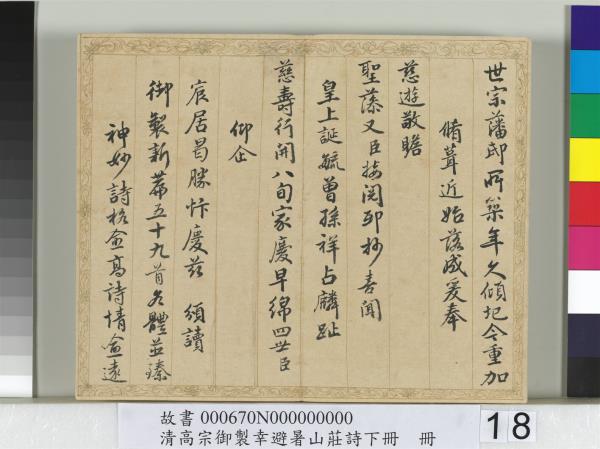 世宗藩邸所築年久傾圮今重加
脩葺近始落成爰奉
慈遊敬瞻
聖藻又臣接閱邸抄喜聞
皇上誕毓曾孫祥占麟趾
慈壽行開八旬家慶早綿四世臣
仰企
宸居曷勝忭慶茲 頒讀
御製新篇五十九首各體並臻
神妙詩格愈高詩情愈遠
故書 000670N000000000
清高宗御製幸避暑山莊詩下冊 冊
18